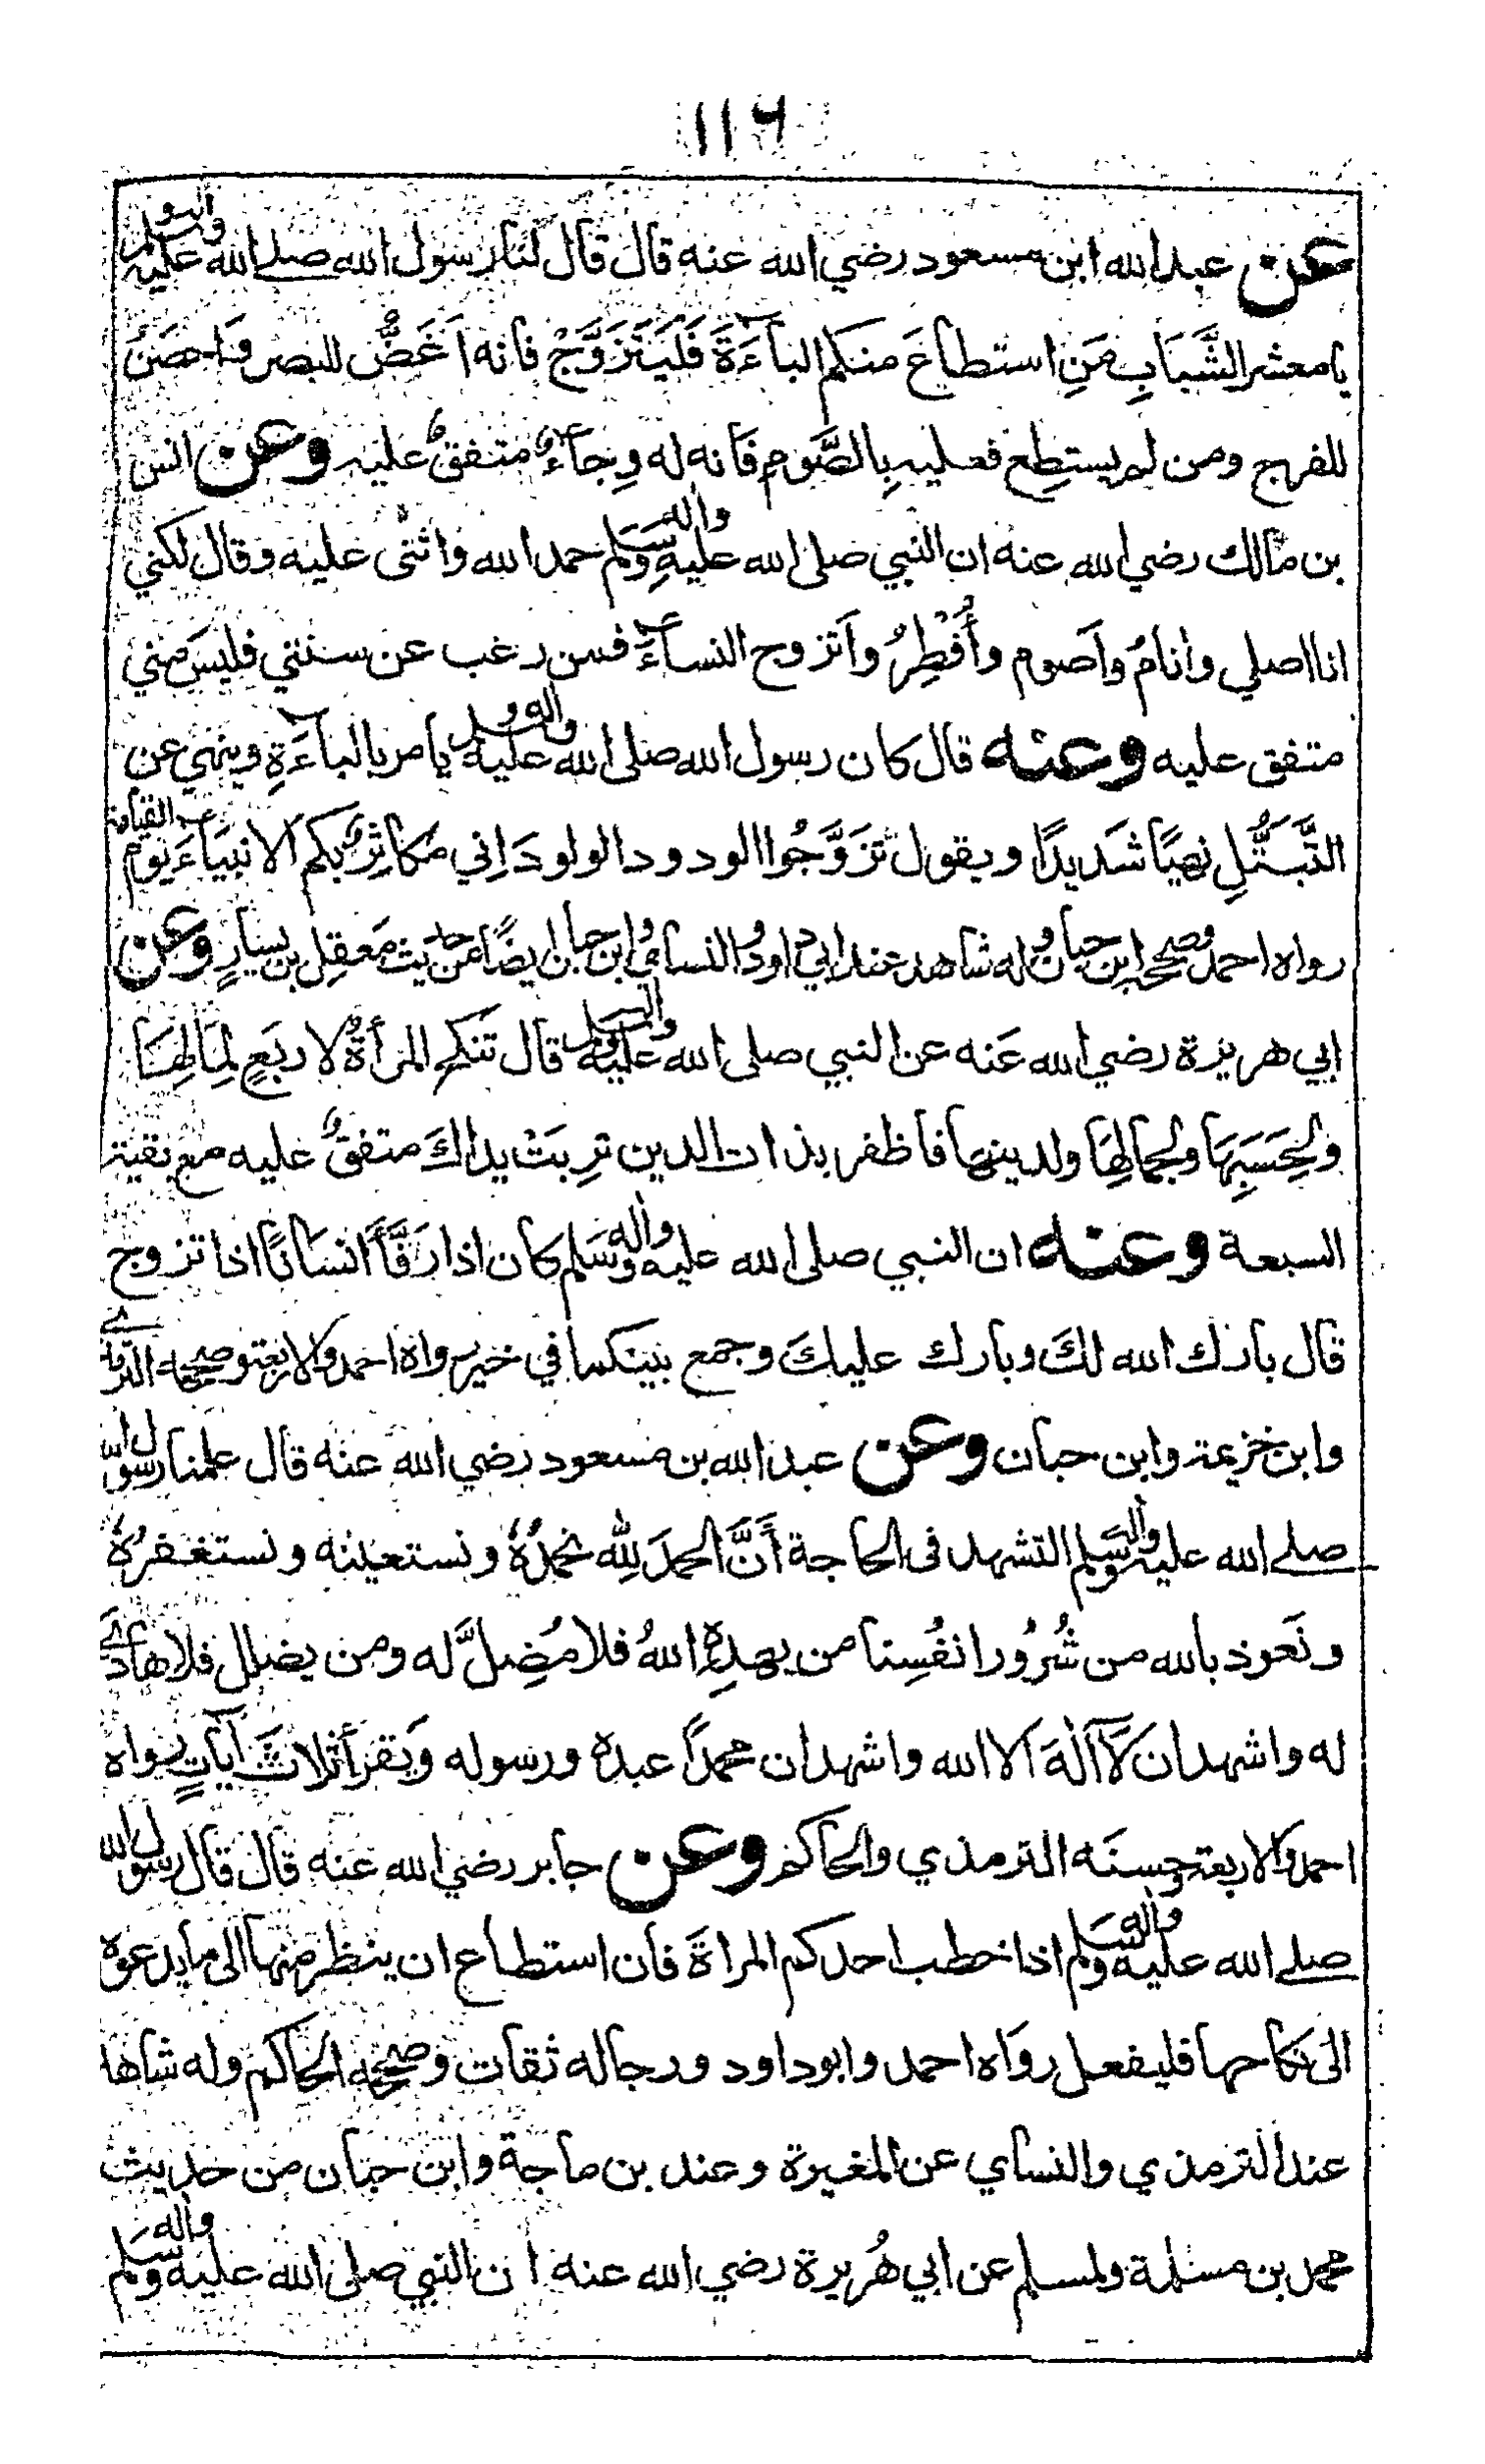 ١١٦
عن عبد الله ابن مسعود رضي الله عنه قال قال لنا رسول الله صلى الله عليه واله وسلم
يا معشر الشَّبَابِ مَنِ استطاعَ منكم الباءَةَ فَليَتَزَوَّجْ فانه اَغَضُّ للبصر وَاحصَنُ
للفرج ومن لم يستطِع فعليه بِالصَّوم فانه له وِجاءٌ متفقٌ عليه وعن انس
بن مالك رضي الله عنه ان النبي صلى الله عليهِ واله وسَلم حمد الله واثنى عليه وقال لكني
انا اصلي وانامُ واَصوم وأُفْطِرُ واَتزوج النساءَ فمن رغب عن سنتي فليسَ مني
متفق عليه وعنه قال كان رسول الله صلى الله عليه واله وسلم يامر بالباءَةِ وينهي عن
التَّبَتُّلِ نهيًا شَديدًا ويقول تَزَوَّجُوا الودود الولودَ اِني مكاثِرٌ بكم الانبيَاءَ يَوم القيامة
رواه احمد وصححه ابن حبان وله شاهد عند ابي داود والنساءي وابن حبان ايضًا من حديث مَعقِل بن يسارٍ وعن
ابي هريرة رضي الله عنه عن النبي صلى الله عليه واله وسلم قال تنكح المرأةُ لاربَعٍ لِمَالِهَا
ولِحَسَبِهَا ولجمالِهَا ولدينها فاظفر بذات الدين تربَتْ يداكَ متفقٌ عليه مع بقية
السبعة وعنه ان النبي صلى الله عليه واله وسَلم كان اذا رَفَّأَ انسَانًا اذا تزوج
قال بارك الله لكَ وبارك عليكَ وجمع بينكما في خير رواه احمد والاربعة وصححه الترمذي
وابن خزيمة وابن حبان وعن عبد الله بن مسعود رضي الله عنه قال علمنا رسول الله
صلى الله عليه واله وسلم التشهد فى الحاجة أَنَّ الحمدَ لِلّٰه نحمَدُهُ ونستعينه ونستغفرُهُ
ونَعوذ بالله من شُرُور انفُسِنا من يهدِهِ اللهُ فلا مُضِلَّ له ومن يضلل فلا هادي
له واشهد ان لَّا اَلٰهَ الا الله واشهد ان محمدًا عبده ورسوله ويَقرأُ ثلاثَ آياتٍ رواه
احمد والاربعة وحسنَه الترمذي والحاكم وعن جابر رضي الله عنه قال قال رسول الله
صلى الله عليه واله وسلم اذا خطب احدكم المراةَ فان استطاع ان ينظر منها الى ما يدعوه
الى نكاحها فليفعل رواه احمد وابو داود ورجاله ثقات وصححه الحاكم وله شاهد
عند الترمذي والنساي عن المغيرة وعند بن ماجة وابن حبان من حديث
محمد بن مسلمة ولمسلم عن ابي هُريرة رضي الله عنه ان النبي صلى الله عليه واله وسَلم